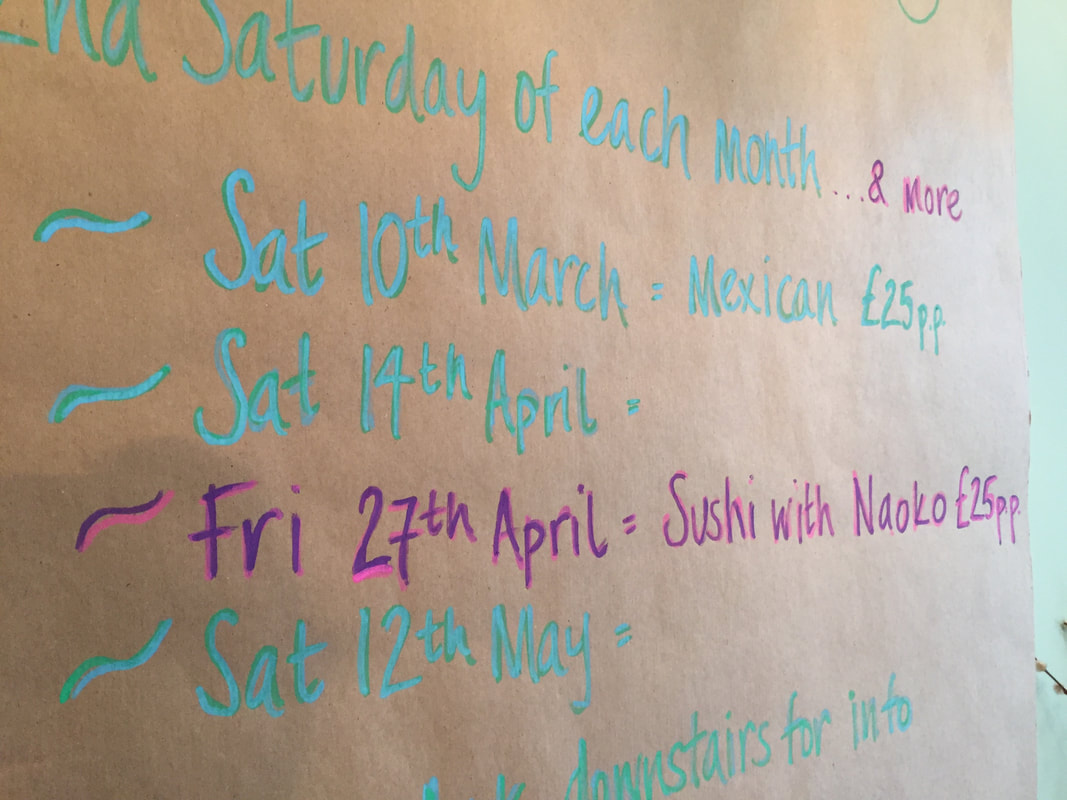 2nd Saturday of each month ...& more
~ Sat 10th March = Mexican £25p.p.
~ Sat 14th April =
~ Fri 27th April = Sushi with Naoko £25p.p.
~ Sat 12th May =
downstairs for info